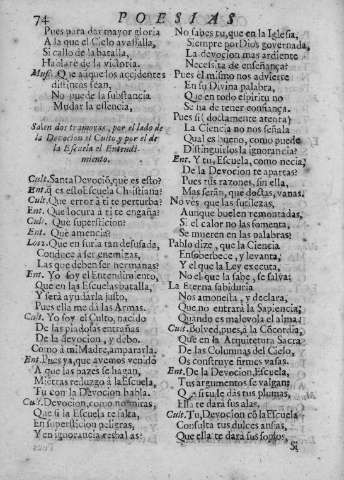 74
POESIAS
Pues para dar mayor gloria
A la que el Cielo avasalla,
Si callo de la batalla,
Hablaré de la victoria.
Musi. Que aunque los accidentes
distintos sean,
No puede la substancia
Mudar la essencia,
Salen dos tramoyas, por el lado de
la Devocion el Culto, y por el de
la Escuela el Entendi-
miento.
Cult. Santa Devociõ, que es esto?
Ent. q̃ es esto Escuela Christiana?
Cult. Que error à ti te perturba?
Ent. Que locura à ti te engaña?
Cult. Que supersticion?
Ent. Que amencia?
Los 2. Que en furia tan desusada,
Conduce à ser enemigas,
Las que deben ser hermanas?
Ent. Yo soy el Entendimiento,
Que en las Escuelas batalla,
Y será ayudarla justo,
Pues ella me dá las Armas.
Cult. Yo soy el Culto, nacido
De las piadosas entrañas
De la devocion, y debo,
Como à mi Madre, ampararla.
Ent. Pues ya, que avemos venido
A que las pazes se hagan,
Miẽtras reduzgo à la Escuela,
Tu con la Devocion habla.
Cult. Devocion, como no miras,
Que si la Escuela te falta,
En supersticion peligras,
Y en ignorancia resbalas?
No sabes tu, que en la Iglesia,
Siempre por Dios governada,
La devocion mas ardiente
Necessita de enseñança?
Pues el mismo nos advierte
En su Divina palabra,
Que en todo espiritu no
Se ha de tener confiança.
Pues si (doctamente atenta)
La Ciencia no nos señala
Qual es bueno, como puede
Distinguirlos la ignorancia?
Ent. Y tu, Escuela, como necia,
De la Devocion te apartas?
Pues tus razones, sin ella,
Mas serán, que doctas, vanas.
No vés que las sutilezas,
Aunque buelen remontadas,
Si el calor no las fomenta,
Se mueren en las palabras?
Pablo dize, que la Ciencia
Ensoberbece, y levanta,
Y el que la Ley executa,
No el que la sabe, se salva:
La Eterna sabiduria
Nos amonesta, y declara,
Que no entrará la Sapiencia,
Quando es malevola el alma.
Cult. Bolved, pues, à la Cõcordia,
Que en la Arquitectura Sacra
De las Columnas del Cielo,
Os construye firmes vasas.
Ent. De la Devocion, Escuela,
Tus argumentos se valgan;
Q̃ si tu le dás tus plumas,
Ella te dará sus alas.
Cult. Tu, Devocion, cõ la Escuela
Consulta tus dulces ansias,
Que ella te dará sus soplos,
Si